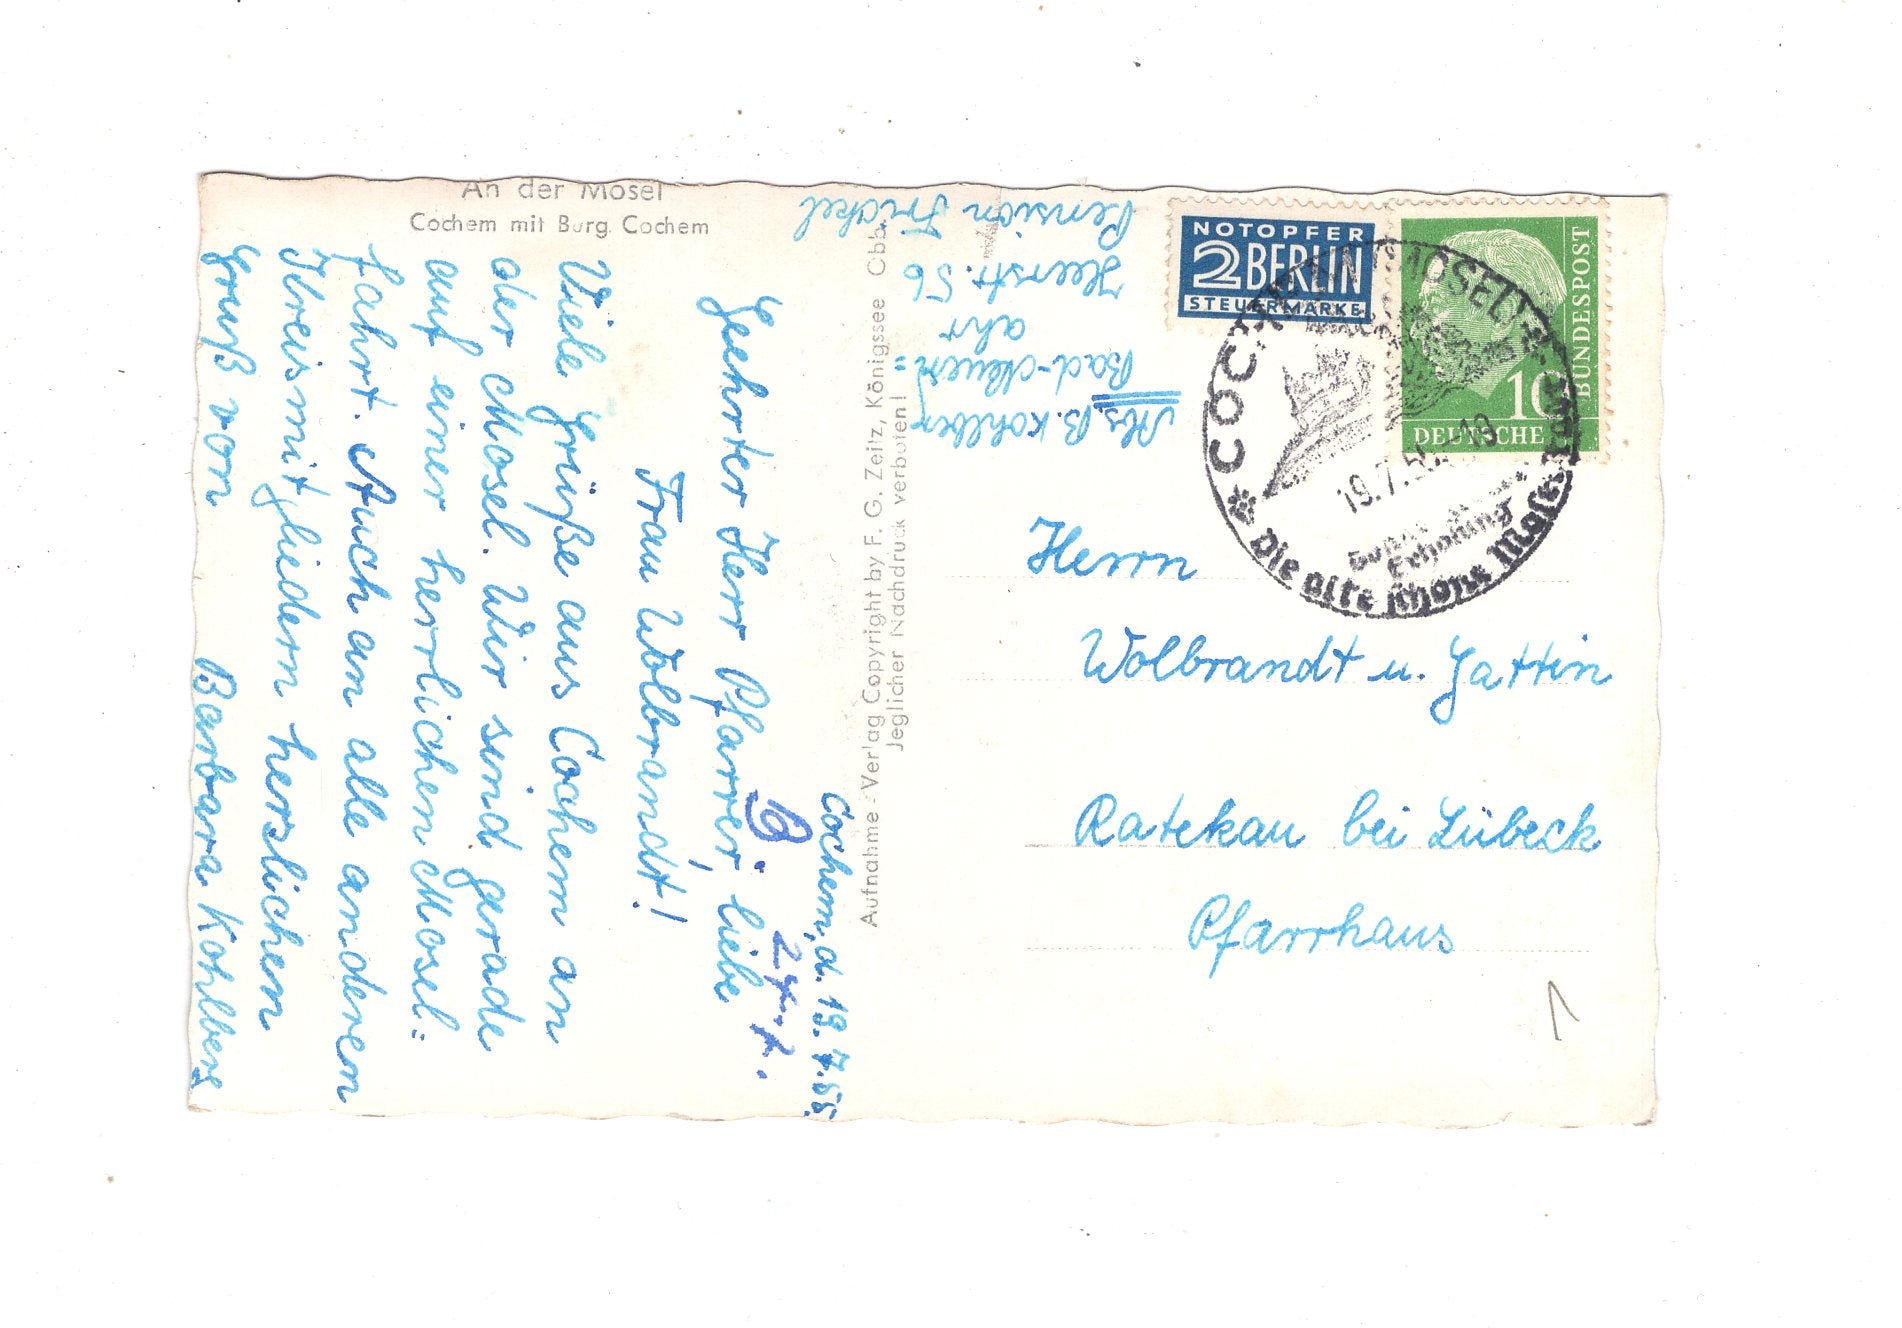 An der Mosel
Cochem mit Burg Cochem
Cochem, d. 19.7.55.
B. 24.7.
Geehrter Herr Pfarrer, liebe
Frau Wolbrandt!
Viele Grüße aus Cochem an
der Mosel. Wir sind gerade
auf einer herrlichen Mosel=
fahrt. Auch an alle anderen
Kreismitgliedern herzlichen
Gruß von
Barbara Kohlberg
Aufnahme - Verlag Copyright by F. G. Zeitz, Königssee Obb.
Jeglicher Nachdruck verboten!
Abs. B. Kohlberg
Bad-Neuen=
ahr
Heerstr. 56
Pension Frickel
NOTOPFER
2 BERLIN
STEUERMARKE
DEUTSCHE
BUNDESPOST
10
COCHEM (MOSEL)
19.7.5 -19
Erholung
Die alte schöne Moselstadt
Herrn
Wolbrandt u. Gattin
Ratekau bei Lübeck
Pfarrhaus